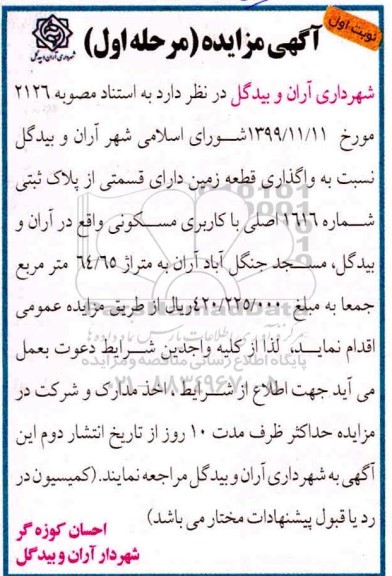 نوبت اول
شهرداری آران و بیدگل
آگهی مزایده (مرحله اول)
شهرداری آران و بیدگل در نظر دارد به استناد مصوبه ۲۱۲۶
مورخ ۱۳۹۹/۱۱/۱۱شورای اسلامی شهر آران و بیدگل
نسبت به واگذاری قطعه زمین دارای قسمتی از پلاک ثبتی
شماره ۱۶۱۶ اصلی با کاربری مسکونی واقع در آران و
بیدگل، مسجد جنگل آباد آران به متراژ ۶۴/۶۵ متر مربع
جمعا به مبلغ ۴۲۰/۲۲۵/۰۰۰ریال از طریق مزایده عمومی
اقدام نماید، لذا از کلیه واجدین شرایط دعوت بعمل
می آید جهت اطلاع از شرایط ، اخذ مدارک و شرکت در
مزایده حداکثر ظرف مدت ۱۰ روز از تاریخ انتشار دوم این
آگهی به شهرداری آران و بیدگل مراجعه نمایند. (کمیسیون در
رد یا قبول پیشنهادات مختار می باشد)
احسان کوزه گر
شهردار آران و بیدگل
پایگاه اطلاع رسانی مناقصه و مزایده